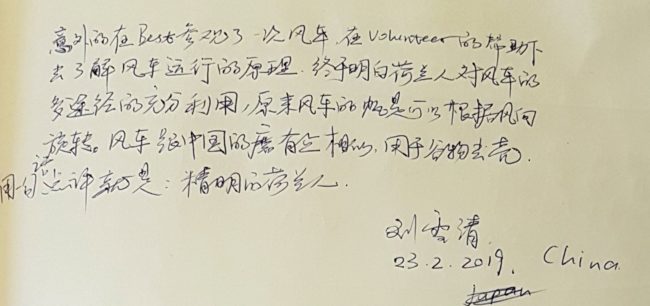 意外的在Best参观了一次风车，在Volunteer的帮助下
去了解风车运行的原理．终于明白荷兰人对风车的
多途径的充分利用，原来风车的帆是可以根据风向
旋转。风车跟中国的磨有点相似，用于谷物去壳．
用一句话点评就是：精明的荷兰人．
刘雪清
23.2.2019. China
Japan